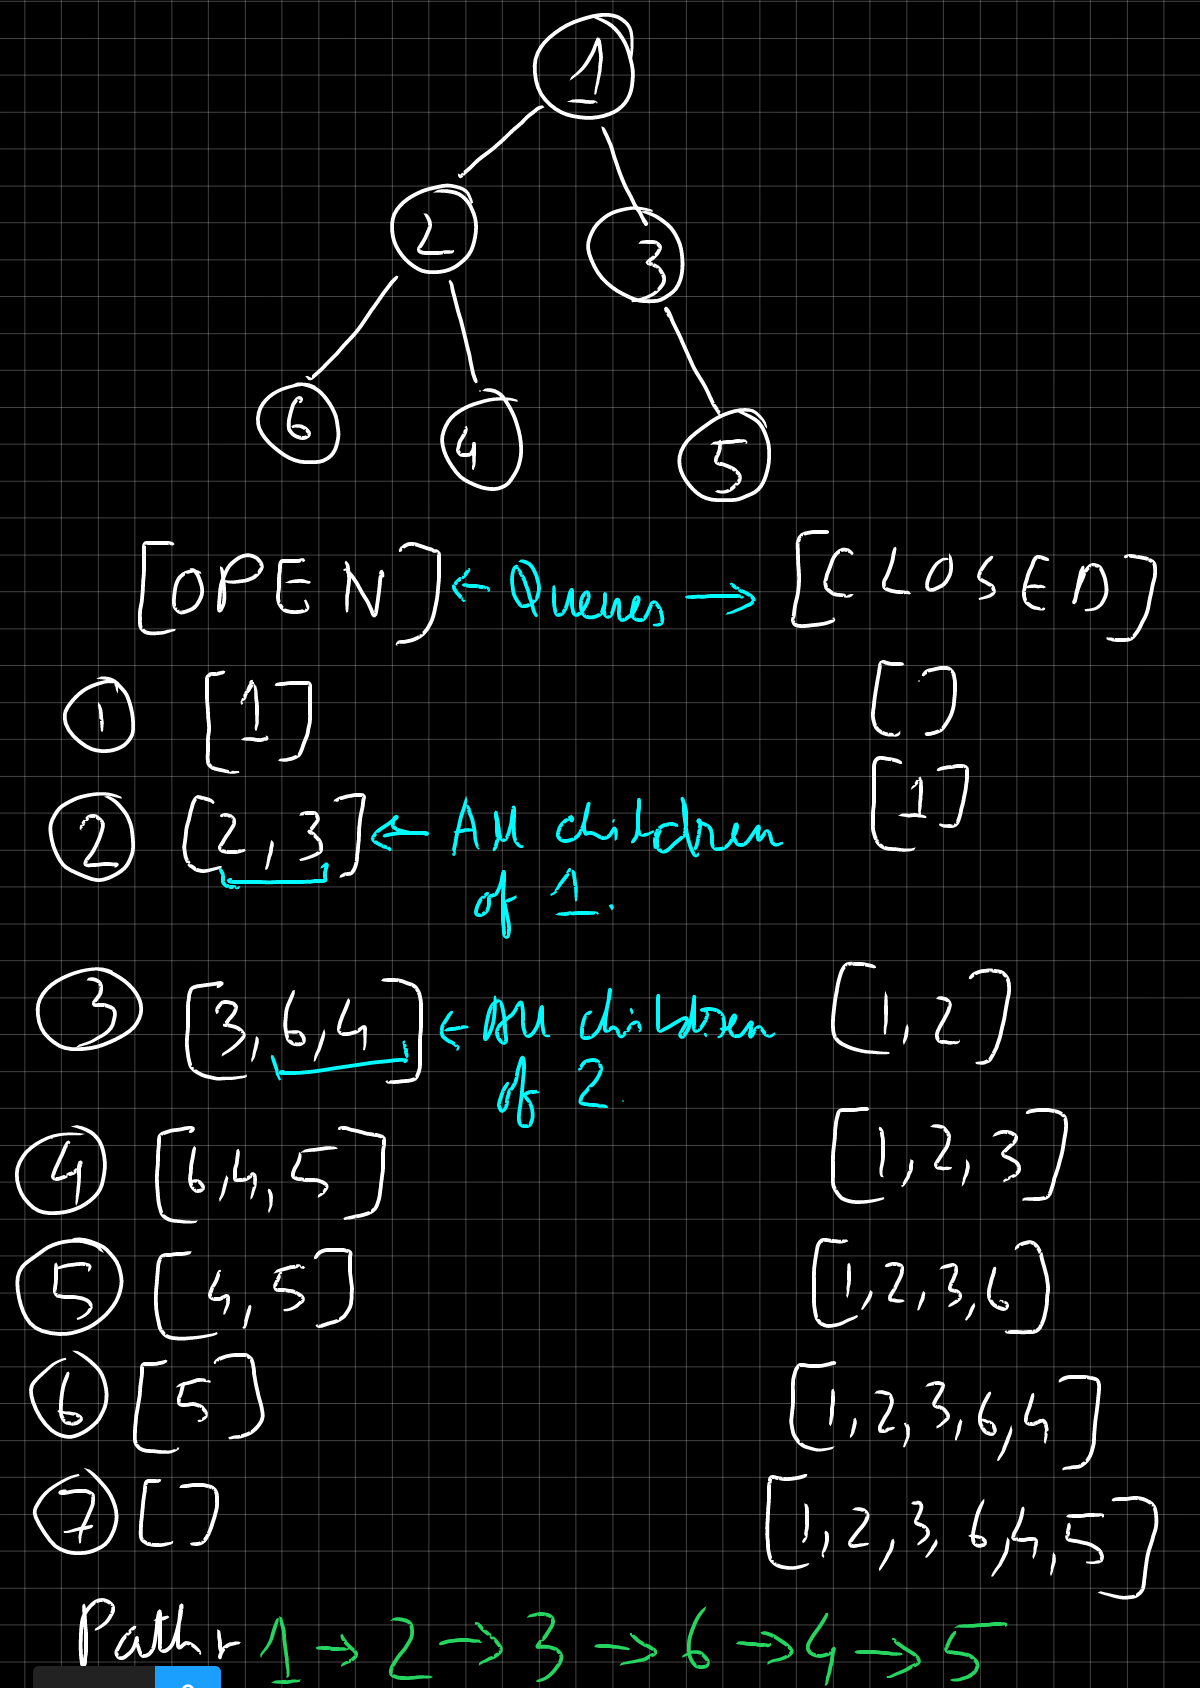 1
2 3
6 4 5
[OPEN] ← Queues → [CLOSED]
① [1] []
② [2,3] ← All children [1]
of 1.
③ [3,6,4] ← All children [1,2]
of 2.
④ [6,4,5] [1,2,3]
⑤ [4,5] [1,2,3,6]
⑥ [5] [1,2,3,6,4]
⑦ [] [1,2,3,6,4,5]
Path: 1 → 2 → 3 → 6 → 4 → 5